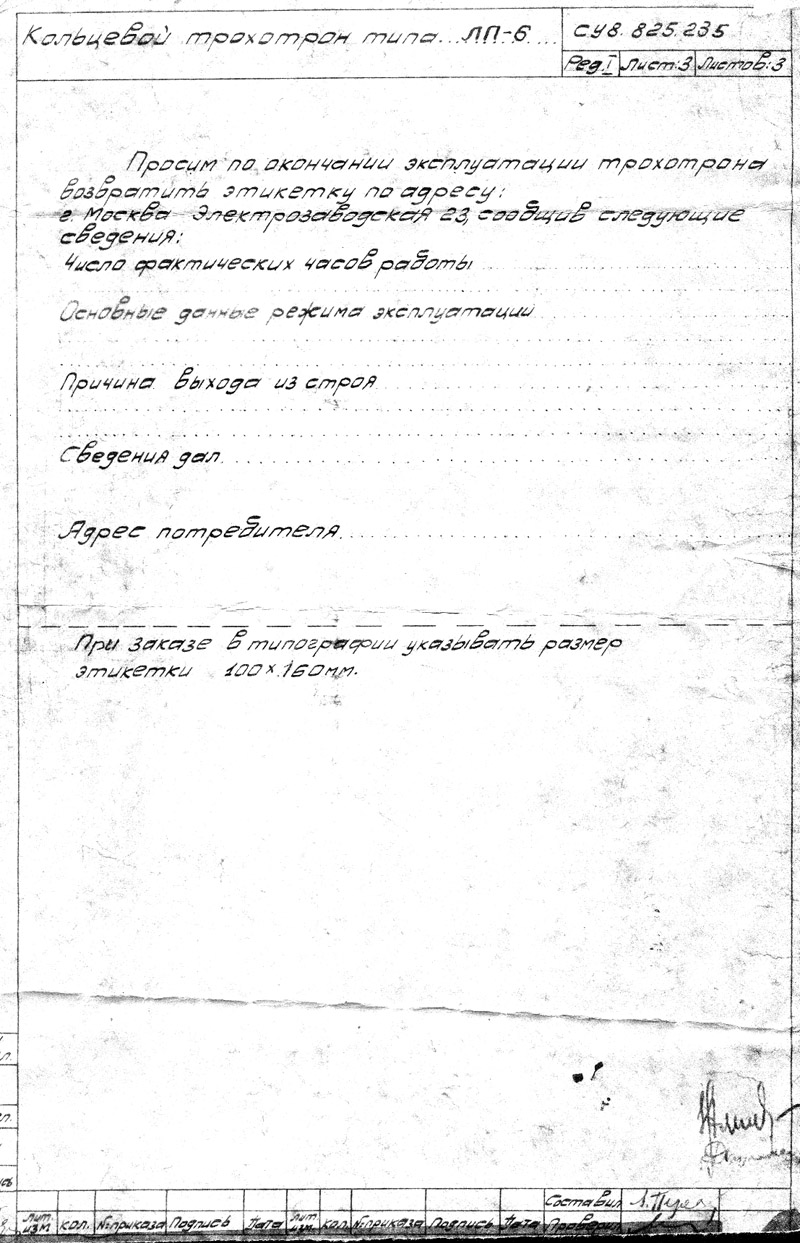 Кольцевой трохотрон типа...ЛП-6....
СУ8.825.235
Ред.I Лист:3 Листов:3
Просим по окончании эксплуатации трохотрона
возвратить этикетку по адресу:
г. Москва Электрозаводская 23, сообщив следующие
сведения:
Число фактических часов работы
Основные данные режима эксплуатации
Причина выхода из строя
Сведения дал
Адрес потребителя
При заказе в типографии указывать размер
этикетки 100×160мм.
Составил
Лит. изм кол. №приказа Подпись Дата Лит. изм кол. №приказа Подпись Дата Проверил